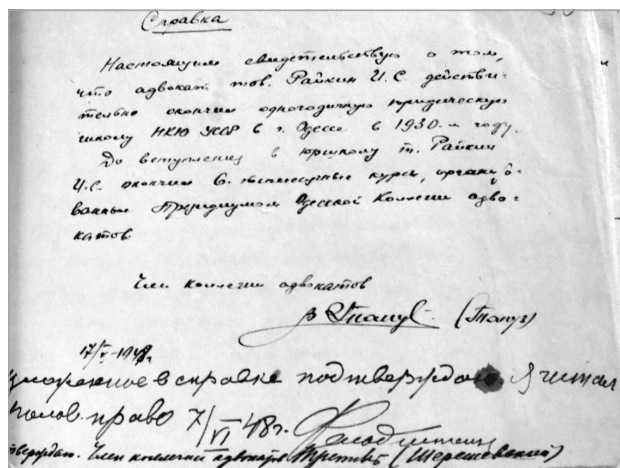 Справка
Настоящим свидетельствую о том,
что адвокат тов. Райкин И.С. действи-
тельно окончил одногодичную юридическую
школу НКЮ УССР в г. Одессе в 1930-м году.
До вступления в юршколу т. Райкин
И.С. окончил 6-месячные курсы, организо-
ванные Президиумом Одесской Коллегии адво-
катов.
Член коллегии адвокатов
(Тапуз)
17/V-1948г.
изложенное в справке подтверждаю Я читал
право 7/VI 48г.
Член коллегии адвокатов (Шерешевский)